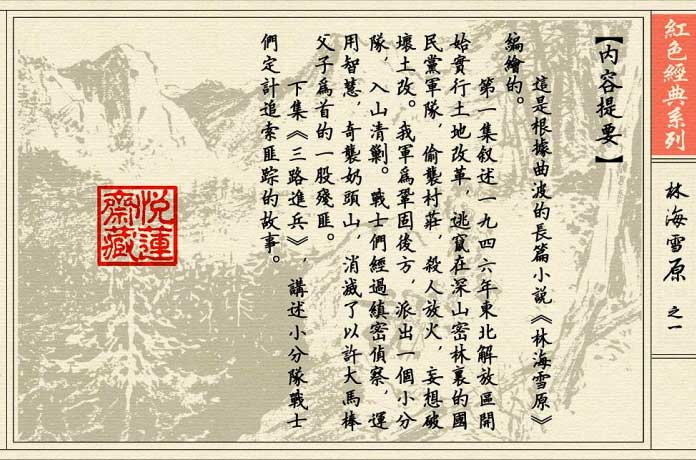 紅色經典系列
林海雪原 之一
【内容提要】
這是根據曲波的長篇小説《林海雪原》
編繪的。
第一集叙述一九四六年東北解放區開
始實行土地改革，逃竄在深山密林裏的國
民黨軍隊，偷襲村莊，殺人放火，妄想破
壞土改。我軍爲鞏固後方，派出一個小分
隊，入山清剿。戰士們經過縝密偵察，運
用智慧，奇襲奶頭山，消滅了以許大馬棒
父子爲首的一股殘匪。
下集《三路進兵》，講述小分隊戰士
們定計追索匪踪的故事。
悦蓮
齋藏